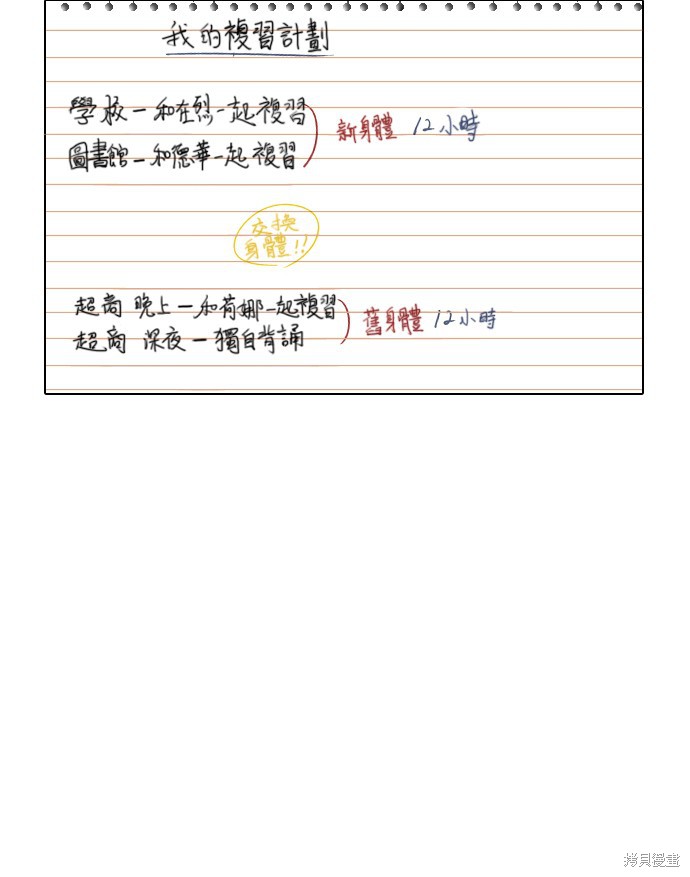 我的複習計劃
學校－和在烈一起複習
圖書館－和德華一起複習
新身體 12小時
交換
身體!!
超商 晚上－和荷娜一起複習
超商 深夜－獨自背誦
舊身體 12小時
拷貝漫畫